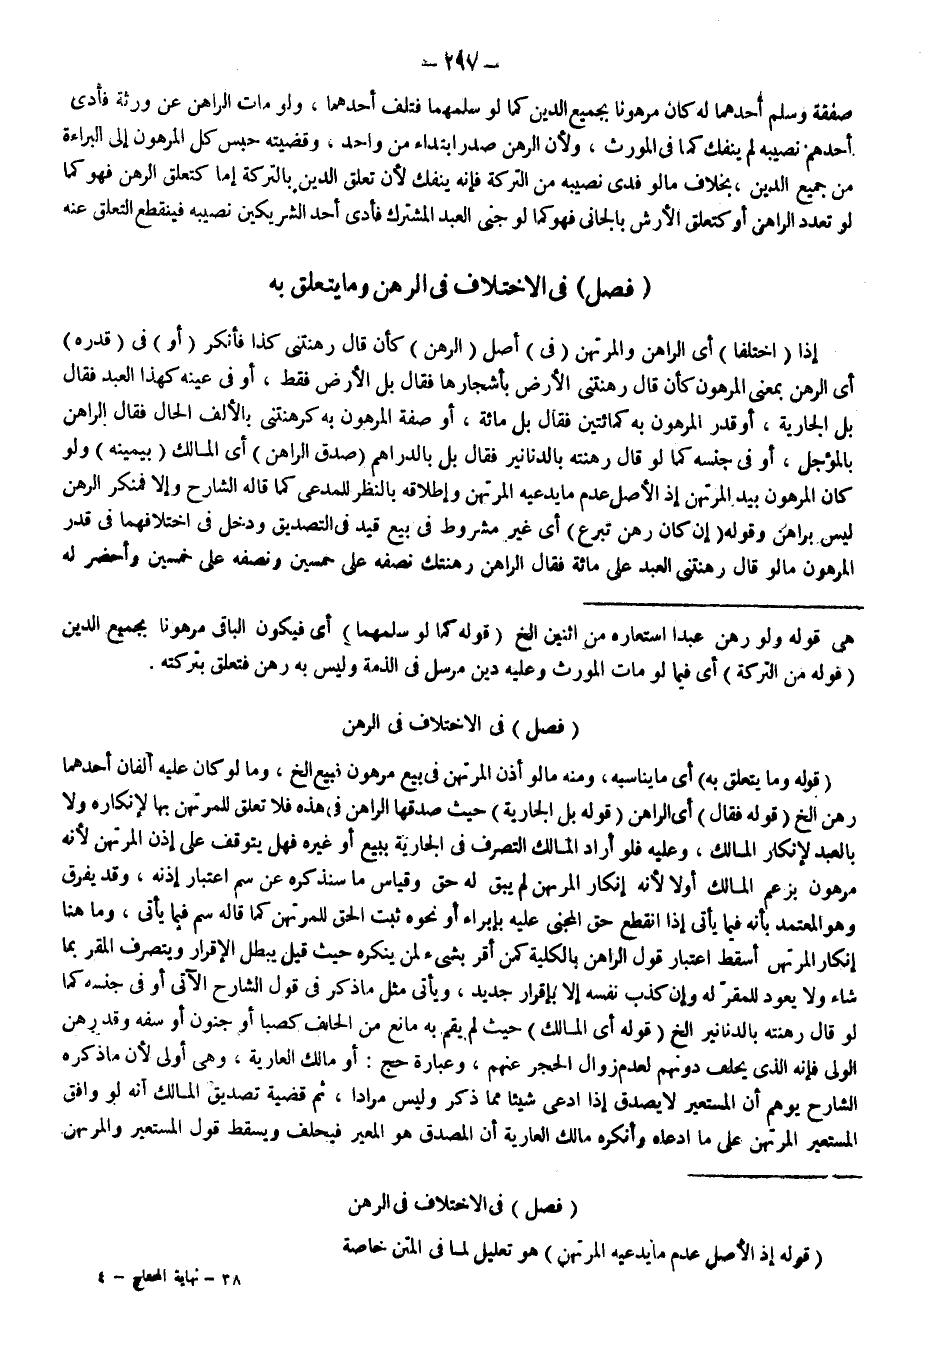 – ٢٩٧ –
صفقة وسلم أحدهما له كان مرهونا بجميع الدين كما لو سلمهما فتلف أحدهما ، ولو مات الراهن عن ورثة فأدى
أحدهم نصيبه لم ينفك كما فى المورث ، ولأن الرهن صدر ابتداء من واحد ، وقضيته حبس كل المرهون إلى البراءة
من جميع الدين ، بخلاف مالو فدى نصيبه من التركة فإنه ينفك لأن تعلق الدين بالتركة إما كتعلق الرهن فهو كما
لو تعدد الراهن أو كتعلق الأرش بالجانى فهو كما لو جنى العبد المشترك فأدى أحد الشريكين نصيبه فينقطع التعلق عنه
( فصل ) فى الاختلاف فى الرهن وما يتعلق به
إذا ( اختلفا ) أى الراهن والمرتهن ( فى ) أصل ( الرهن ) كأن قال رهنتنى كذا فأنكر ( أو ) فى ( قدره )
أى الرهن بمعنى المرهون كأن قال رهنتنى الأرض بأشجارها فقال بل الأرض فقط ، أو فى عينه كهذا العبد فقال
بل الجارية ، أو قدر المرهون به كمائتين فقال بل مائة ، أو صفة المرهون به كرهنتنى بالألف الحال فقال الراهن
بالمؤجل ، أو فى جنسه كما لو قال رهنته بالدنانير فقال بل بالدراهم ( صدق الراهن ) أى المالك ( بيمينه ) ولو
كان المرهون بيد المرتهن إذ الأصل عدم ما يدعيه المرتهن وإطلاقه بالنظر للمدعى كما قاله الشارح وإلا فمنكر الرهن
ليس براهن وقوله ( إن كان رهن تبرع ) أى غير مشروط فى بيع قيد فى التصديق ودخل فى اختلافهما فى قدر
المرهون مالو قال رهنتنى العبد على مائة فقال الراهن رهنتك نصفه على خمسين ونصفه على خمسين وأحضر له
هى قوله ولو رهن عبدا استعاره من اثنين الخ ( قوله كما لو سلمهما ) أى فيكون الباقى مرهونا بجميع الدين
( قوله من التركة ) أى فيما لو مات المورث وعليه دين مرسل فى الذمة وليس به رهن فتعلق بتركته .
( فصل ) فى الاختلاف فى الرهن
( قوله وما يتعلق به ) أى مايناسبه ، ومنه مالو أذن المرتهن فى بيع مرهون فبيع الخ ، وما لو كان عليه ألفان أحدهما
رهن الخ ( قوله فقال ) أى الراهن ( قوله بل الجارية ) حيث صدقها الراهن فى هذه فلا تعلق للمرتهن بها لإنكاره ولا
بالعبد لإنكار المالك ، وعليه فلو أراد المالك التصرف فى الجارية ببيع أو غيره فهل يتوقف على إذن المرتهن لأنه
مرهون بزعم المالك أولا لأنه إنكار المرتهن لم يبق له حق وقياس ما سنذكره عن سم اعتبار إذنه ، وقد يفرق
وهو المعتمد بأنه فيما يأتى إذا انقطع حق المجنى عليه بإبراء أو نحوه ثبت الحق للمرتهن كما قاله سم فيما يأتى ، وما هنا
إنكار المرتهن أسقط اعتبار قول الراهن بالكلية كمن أقر بشىء لمن ينكره حيث قيل يبطل الإقرار ويتصرف المقر بما
شاء ولا يعود للمقر له وإن كذب نفسه إلا بإقرار جديد ، ويأتى مثل ماذكر فى قول الشارح الآتى أو فى جنسه كما
لو قال رهنته بالدنانير الخ ( قوله أى المالك ) حيث لم يقم به مانع من الحلف كصبا أو جنون أو سفه وقد رهن
الولى فإنه الذى يحلف دونهم لعدم زوال الحجر عنهم ، وعبارة حج : أو مالك العارية ، وهى أولى لأن ماذكره
الشارح يوهم أن المستعير لايصدق إذا ادعى شيئا مما ذكر وليس مرادا ، ثم قضية تصديق المالك أنه لو وافق
المستعير المرتهن على ما ادعاه وأنكره مالك العارية أن المصدق هو المعير فيحلف ويسقط قول المستعير والمرتهن.
( فصل ) فى الاختلاف فى الرهن
( قوله إذ الأصل عدم مايدعيه المرتهن ) هو تعليل لما فى المتن خاصة
٣٨ – نهاية المحتاج – ٤